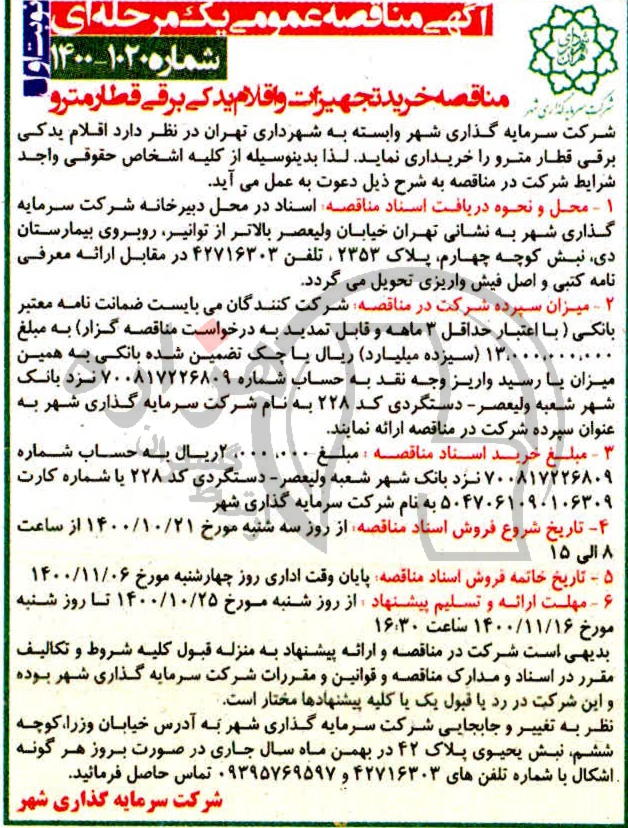 آگهی مناقصه عمومی یک مرحله‌ای
شماره ۱۰۲۰-۱۴۰۰
نوبت اول
شرکت سرمایه گذاری شهر
مناقصه خرید تجهیزات و اقلام یدکی برقی قطار مترو
شرکت سرمایه گذاری شهر وابسته به شهرداری تهران در نظر دارد اقلام یدکی
برقی قطار مترو را خریداری نماید. لذا بدینوسیله از کلیه اشخاص حقوقی واجد
شرایط شرکت در مناقصه به شرح ذیل دعوت به عمل می آید.
۱ - محل و نحوه دریافت اسناد مناقصه: اسناد در محل دبیرخانه شرکت سرمایه
گذاری شهر به نشانی تهران خیابان ولیعصر بالاتر از توانیر، روبروی بیمارستان
دی، نبش کوچه چهارم، پلاک ۲۳۵۳ ، تلفن ۴۲۷۱۶۳۰۳ در مقابل ارائه معرفی
نامه کتبی و اصل فیش واریزی تحویل می گردد.
۲ - میزان سپرده شرکت در مناقصه: شرکت کنندگان می بایست ضمانت نامه معتبر
بانکی ( با اعتبار حداقل ۳ ماهه و قابل تمدید به درخواست مناقصه گزار) به مبلغ
۱۳،۰۰۰،۰۰۰،۰۰۰ (سیزده میلیارد) ریال یا چک تضمین شده بانکی به همین
میزان یا رسید واریز وجه نقد به حساب شماره ۷۰۰۸۱۷۲۲۶۸۰۹ نزد بانک
شهر شعبه ولیعصر- دستگردی کد ۲۲۸ به نام شرکت سرمایه گذاری شهر به
عنوان سپرده شرکت در مناقصه ارائه نمایند.
۳ - مبلغ خرید اسناد مناقصه : مبلغ ۲،۰۰۰،۰۰۰ریال به حساب شماره
۷۰۰۸۱۷۲۲۶۸۰۹ نزد بانک شهر شعبه ولیعصر- دستگردی کد ۲۲۸ یا شماره کارت
۵۰۴۷۰۶۱۰۹۰۱۰۶۳۰۹ به نام شرکت سرمایه گذاری شهر
۴- تاریخ شروع فروش اسناد مناقصه: از روز سه شنبه مورخ ۱۴۰۰/۱۰/۲۱ از ساعت
۸ الی ۱۵
۵ - تاریخ خاتمه فروش اسناد مناقصه: پایان وقت اداری روز چهارشنبه مورخ ۱۴۰۰/۱۱/۰۶
۶ - مهلت ارائه و تسلیم پیشنهاد : از روز شنبه مورخ ۱۴۰۰/۱۰/۲۵ تا روز شنبه
مورخ ۱۴۰۰/۱۱/۱۶ ساعت ۱۶:۳۰
بدیهی است شرکت در مناقصه و ارائه پیشنهاد به منزله قبول کلیه شروط و تکالیف
مقرر در اسناد و مدارک مناقصه و قوانین و مقررات شرکت سرمایه گذاری شهر بوده
و این شرکت در رد یا قبول یک یا کلیه پیشنهادها مختار است.
نظر به تغییر و جابجایی شرکت سرمایه گذاری شهر به آدرس خیابان وزرا،کوچه
ششم، نبش یحیوی پلاک ۴۲ در بهمن ماه سال جاری در صورت بروز هر گونه
اشکال با شماره تلفن های ۴۲۷۱۶۳۰۳ و ۰۹۳۹۵۷۶۹۵۹۷ تماس حاصل فرمائید.
شرکت سرمایه گذاری شهر